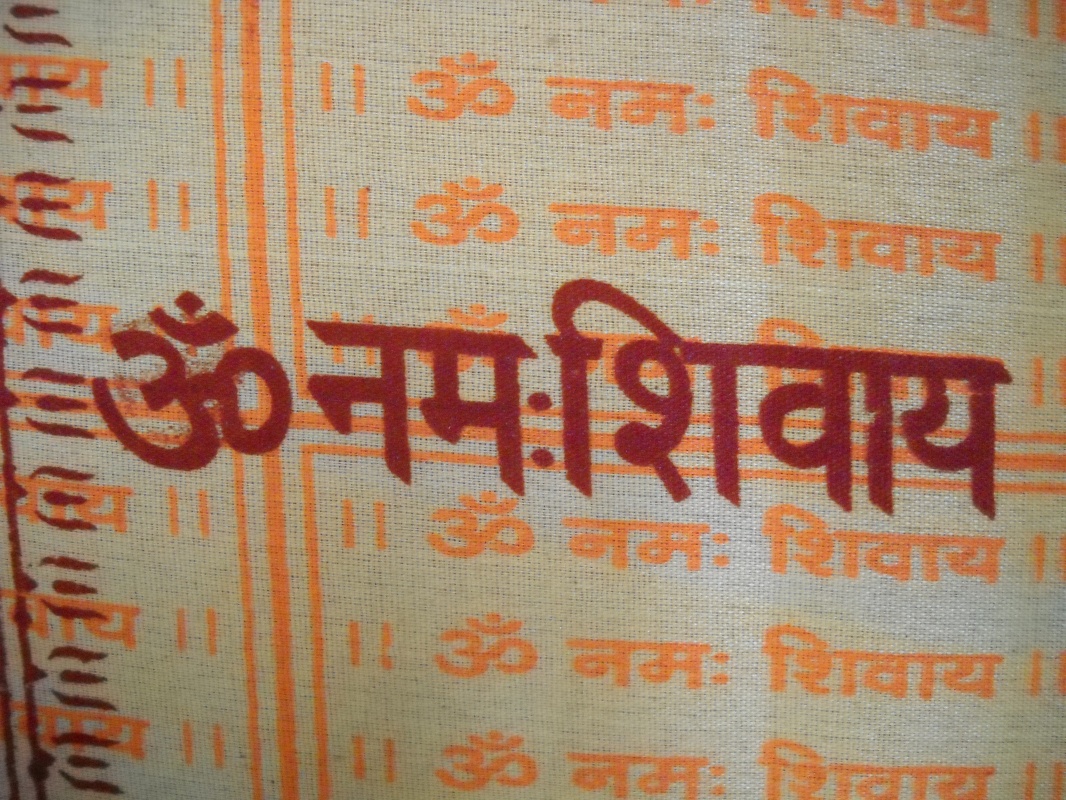 शिवाय ||
य || || ॐ नमः शिवाय ||
य || || ॐ नमः शिवाय ||
ॐ नमः शिवाय
|| ॐ नमः शिवाय ||
|| ॐ नमः शिवाय ||
य || || ॐ नमः शिवाय ||
य || || ॐ नमः शिवाय ||
य || || ॐ नमः शिवाय